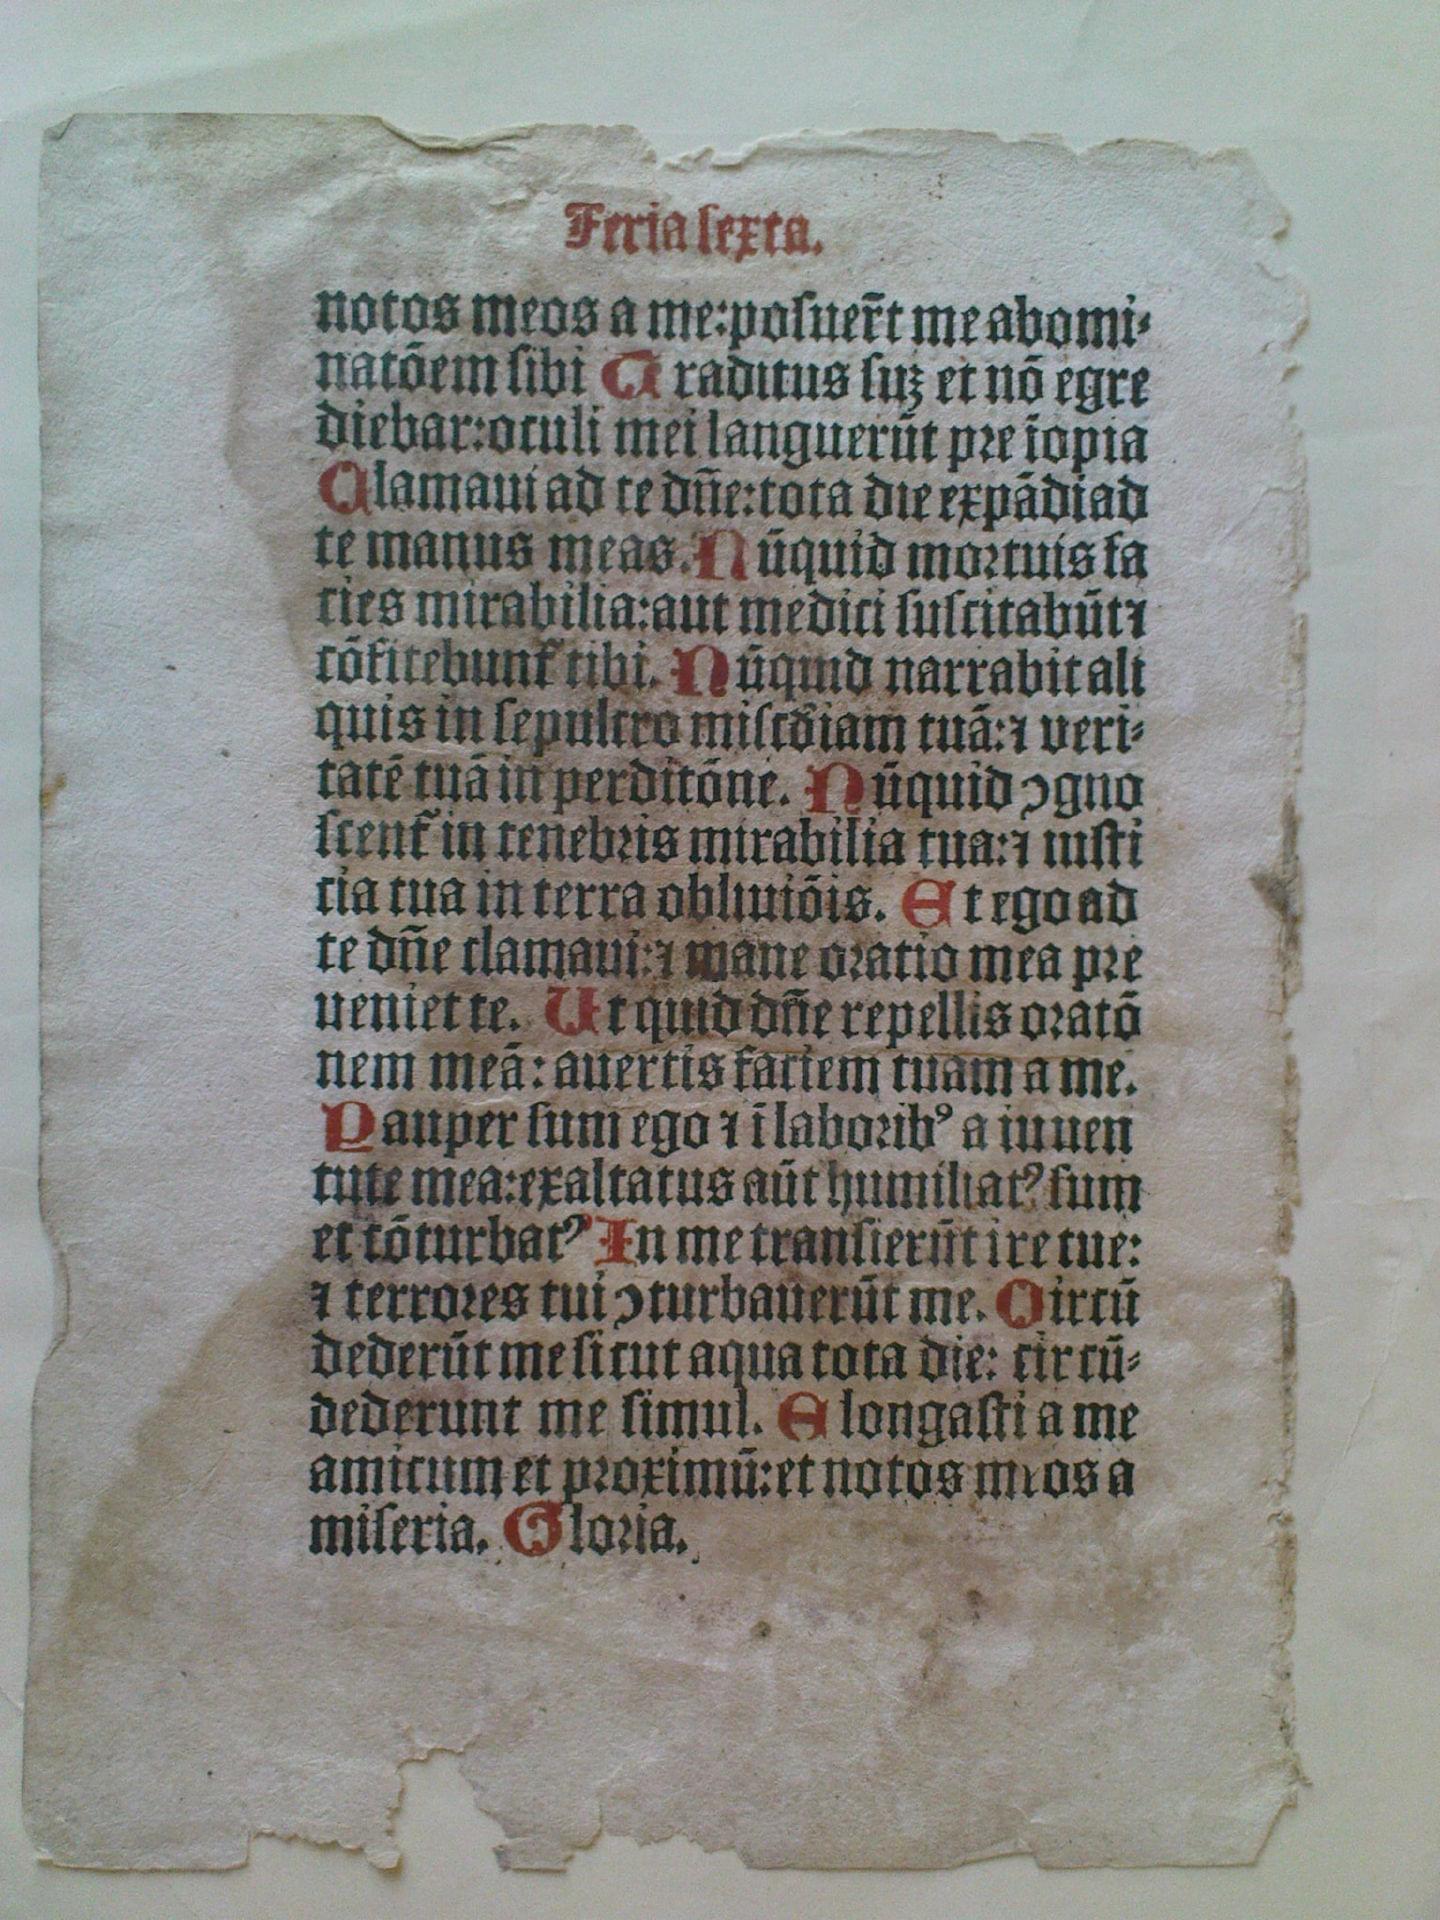 Feria sexta.
notos meos a me:posuer̄t me abomi⸗
natōem sibi Traditus suꝫ et nō egre
diebar:oculi mei languerūt pre īopia
Clamaui ad te dn̄e:tota die expādi ad
te manus meas. Nūquid mortuis fa
cies mirabilia:aut medici suscitabūt ⁊
cōfitebunt᷑ tibi. Nūquid narrabit ali
quis in sepulcro misc̄diam tuā:⁊ veri⸗
tatē tuā in perditōne. Nūquid ↄgno
scent᷑ in tenebris mirabilia tua:⁊ iusti
cia tua in terra obliuiōis. Et ego ad
te dn̄e clamaui:⁊ mane oratio mea pre
ueniet te. Ut quid dn̄e repellis oratō
nem meā: auertis faciem tuam a me.
Pauper sum ego ⁊ ī laboribꝰ a iuuen
tute mea:exaltatus aūt humiliatꝰ sum
et cōturbatꝰ In me transierūt ire tue:
⁊ terrores tui ↄturbauerūt me. Circū
dederūt me sicut aqua tota die: circū⸗
dederunt me simul. Elongasti a me
amicum et proximū:et notos meos a
miseria. Gloria.